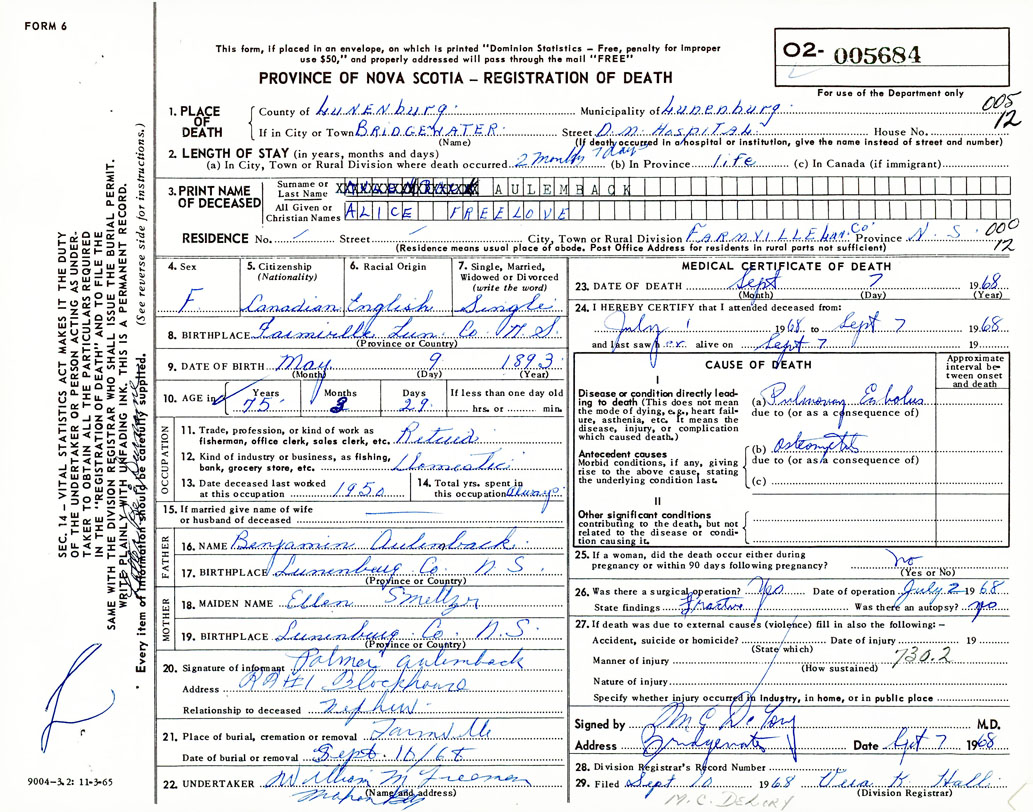 FORM 6
This form, if placed in an envelope, on which is printed "Dominion Statistics – Free, penalty for Improper
use $50," and properly addressed will pass through the mail "FREE"
PROVINCE OF NOVA SCOTIA – REGISTRATION OF DEATH
O2- 005684
For use of the Department only
005
12
1. PLACE OF DEATH
County of Lunenburg Municipality of Lunenburg
If in City or Town BRIDGEWATER Street D.M. Hospital House No.
(Name) (If death occurred in a hospital or institution, give the name instead of street and number)
2. LENGTH OF STAY (in years, months and days)
(a) In City, Town or Rural Division where death occurred 2 Months 7 days (b) In Province life (c) In Canada (if immigrant)
3. PRINT NAME OF DECEASED
Surname or Last Name AULEMBACK
All Given or Christian Names ALICE FREELOVE
RESIDENCE No. Street City, Town or Rural Division FARMVILLE Lun. Co. Province N. S.
000
12
(Residence means usual place of abode. Post Office Address for residents in rural parts not sufficient)
4. Sex F
5. Citizenship (Nationality) Canadian
6. Racial Origin English
7. Single, Married, Widowed or Divorced (write the word) Single
8. BIRTHPLACE Farmville Lun. Co. N. S.
(Province or Country)
9. DATE OF BIRTH May 9 1893
(Month) (Day) (Year)
10. AGE in Years 75 Months 3 Days 29 If less than one day old
hrs. or min.
OCCUPATION
11. Trade, profession, or kind of work as fisherman, office clerk, sales clerk, etc. Retired
12. Kind of industry or business, as fishing, bank, grocery store, etc. Domestic
13. Date deceased last worked at this occupation 1950
14. Total yrs. spent in this occupation Always
15. If married give name of wife or husband of deceased
FATHER
16. NAME Benjamin Aulemback
17. BIRTHPLACE Lunenburg Co. N S.
(Province or Country)
MOTHER
18. MAIDEN NAME Ellen Smeltzer
19. BIRTHPLACE Lunenburg Co. N. S.
(Province or Country)
20. Signature of informant Palmer Aulemback
Address RR#1 Blockhouse
Relationship to deceased Nephew
21. Place of burial, cremation or removal Farmville
Date of burial or removal Sept. 10/68
22. UNDERTAKER William M Freeman
(Name and address)
MEDICAL CERTIFICATE OF DEATH
23. DATE OF DEATH Sept 7 1968
(Month) (Day) (Year)
24. I HEREBY CERTIFY that I attended deceased from:
July 1 1968 to Sept 7 1968
and last saw her alive on Sept 7 19
CAUSE OF DEATH
Approximate interval between onset and death
I
Disease or condition directly leading to death (This does not mean the mode of dying, e.g., heart failure, asthenia, etc. It means the disease, injury, or complication which caused death.)
(a) Pulmonary Embolus
due to (or as a consequence of)
Antecedent causes
Morbid conditions, if any, giving rise to the above cause, stating the underlying condition last.
(b)
due to (or as a consequence of)
(c)
II
Other significant conditions contributing to the death, but not related to the disease or condition causing it.
25. If a woman, did the death occur either during pregnancy or within 90 days following pregnancy? No
(Yes or No)
26. Was there a surgical operation? Yes Date of operation July 2 1968
State findings Fracture Was there an autopsy? no
27. If death was due to external causes (violence) fill in also the following: –
Accident, suicide or homicide? Date of injury 19
(State which)
Manner of injury 730.2
(How sustained)
Nature of injury
Specify whether injury occurred in Industry, in home, or in public place
Signed by M C DeLory M.D.
Address Bridgewater Date Sept 7 1968
28. Division Registrar's Record Number
29. Filed Sept 10 1968 Vera K. Hall
(Division Registrar)
M. C. DELORY
SEC. 14 – VITAL STATISTICS ACT MAKES IT THE DUTY
OF THE UNDERTAKER OR PERSON ACTING AS UNDER-
TAKER TO OBTAIN ALL THE PARTICULARS REQUIRED
IN THE "REGISTRATION OF DEATH" AND TO FILE THE
SAME WITH THE DIVISION REGISTRAR WHO SHALL ISSUE THE BURIAL PERMIT.
WRITE PLAINLY WITH UNFADING INK. THIS IS A PERMANENT RECORD.
Every item of information should be carefully supplied. (See reverse side for instructions.)
9004-3.2: 11-3-65